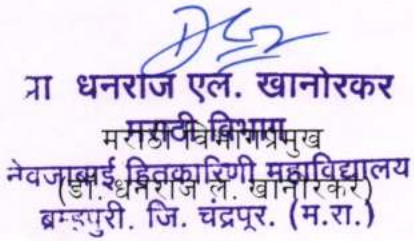 प्रा धनराज एल. खानोरकर
मराठी विभाग
मराठी विभागप्रमुख
नेवजाबाई हितकारिणी महाविद्यालय
(डॉ. धनराज ल. खानोरकर)
ब्रम्हपुरी. जि. चंद्रपूर. (म.रा.)